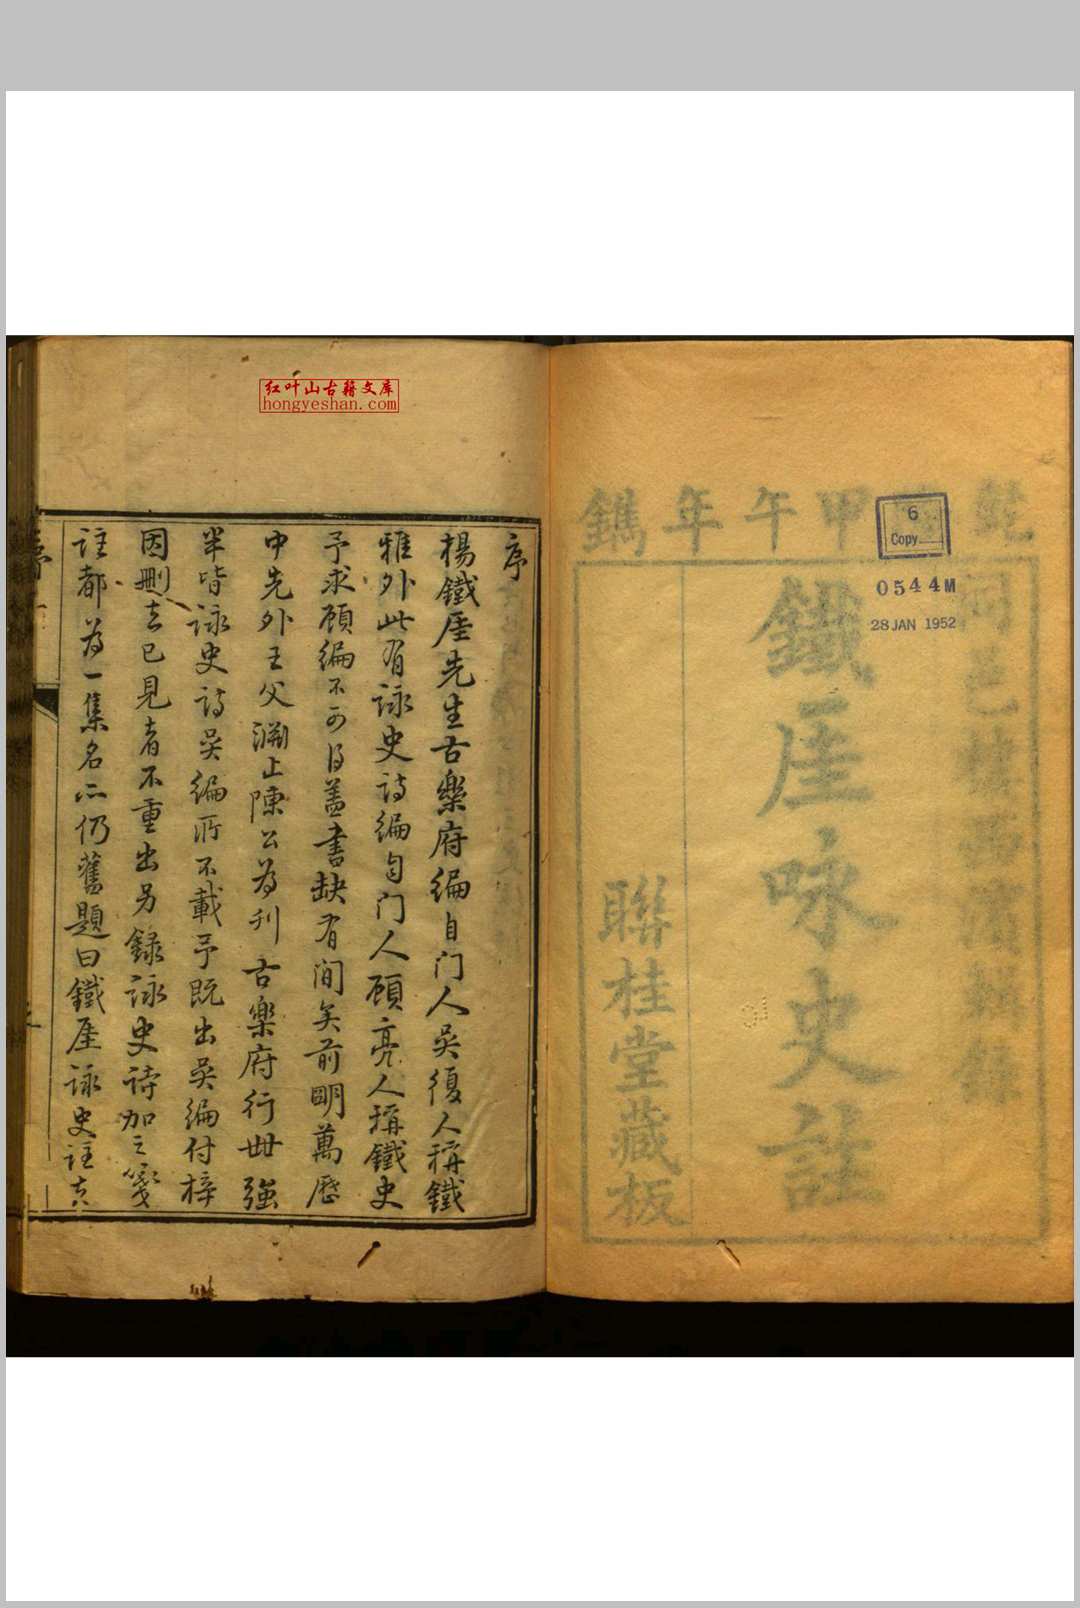 红叶山古籍文库
hongyeshan.com
乾隆甲午年鐫
同邑樓西濱輯錄
鐵厓咏史註
聯桂堂藏板
6
Copy
0544M
28 JAN 1952
序
楊鐵厓先生古樂府編自门人吴復人稱鐵
雅外此有詠史詩編自门人顧亮人稱鐵史
予求顧編不可得盖書缺有间矣前明萬歷
中先外王父淵止陳公為刊古樂府行世強
半皆詠史詩吴編所不載予既出吴編付梓
因刪去已見者不重出另錄詠史詩加之箋
註都為一集名亦仍舊題曰鐵厓詠史註